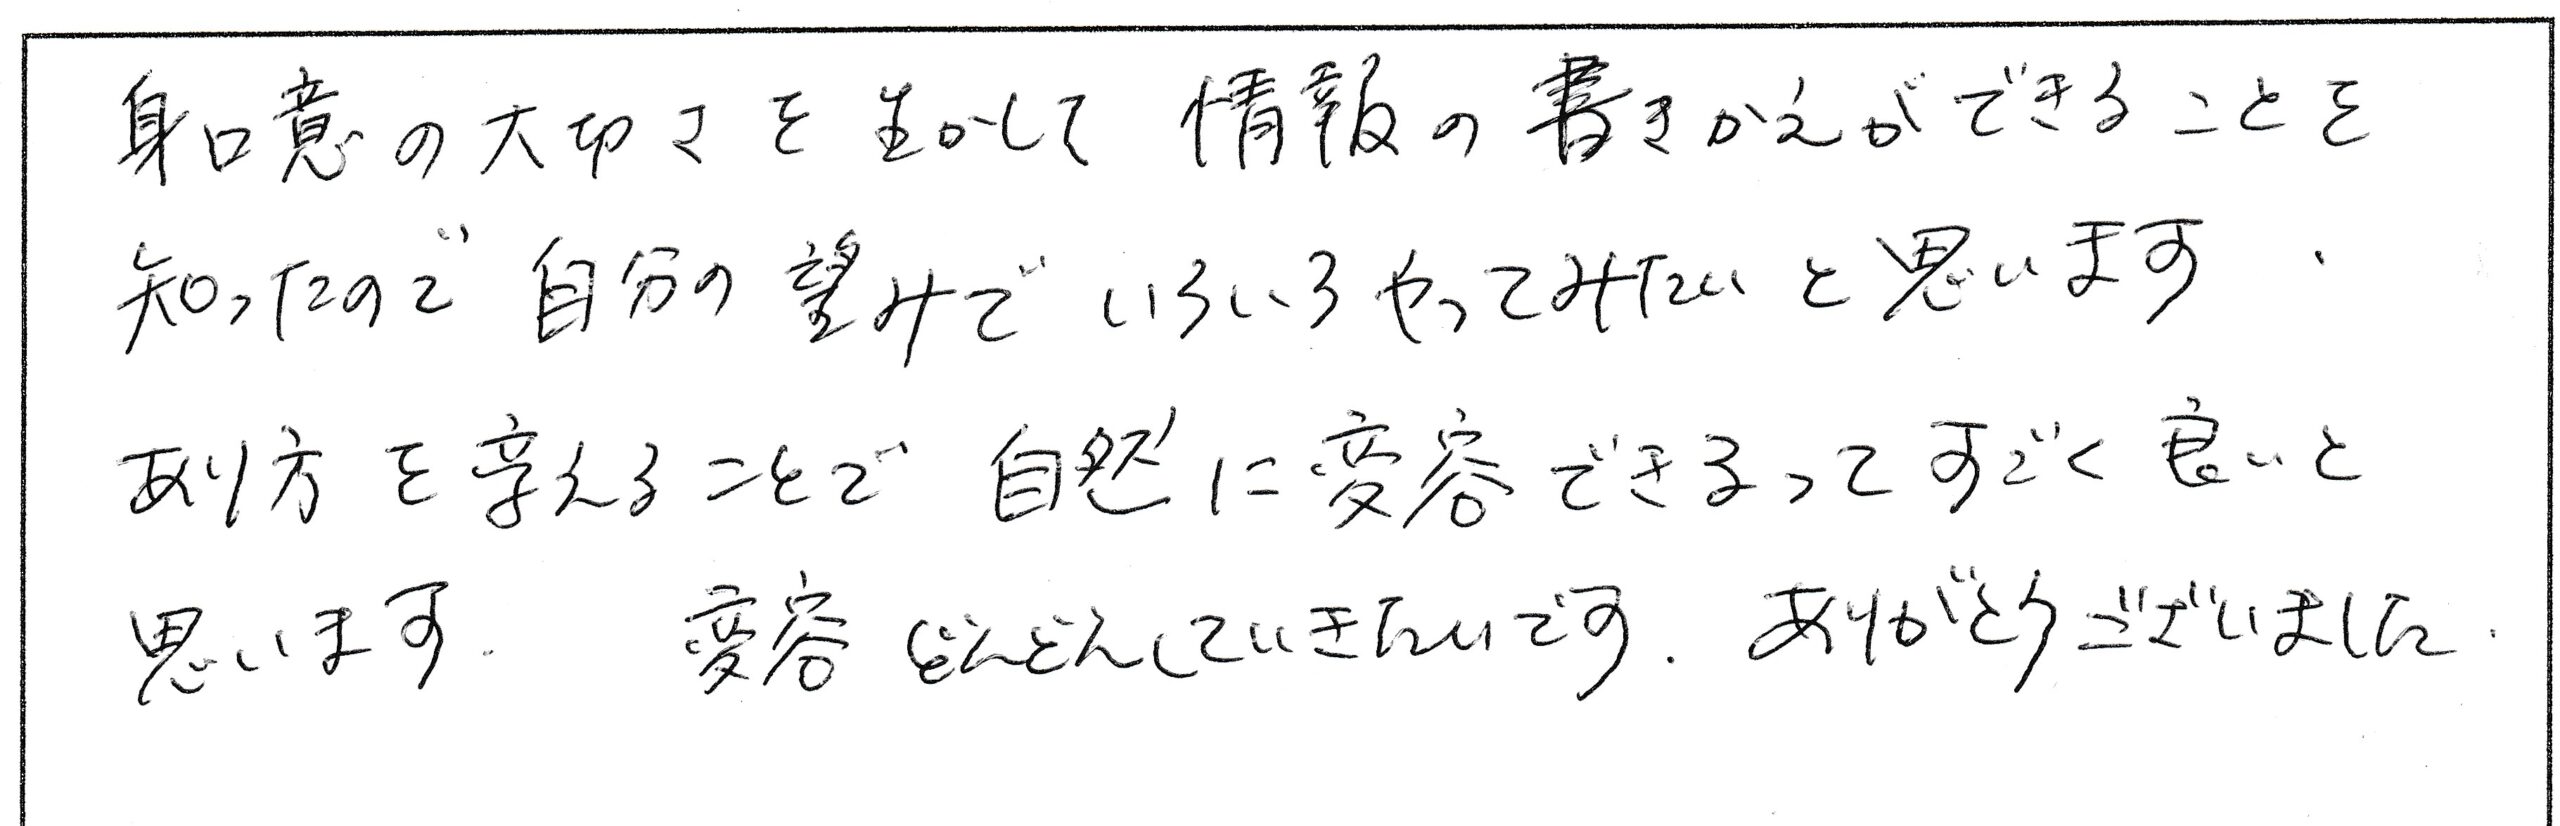 身口意の大切さを生かして 情報の書きかえができることを
知ったので 自分の望みで いろいろやってみたいと思います.
あり方を変えることで 自然に変容できるってすごく良いと
思います. 変容どんどんしていきたいです. ありがとうございました.